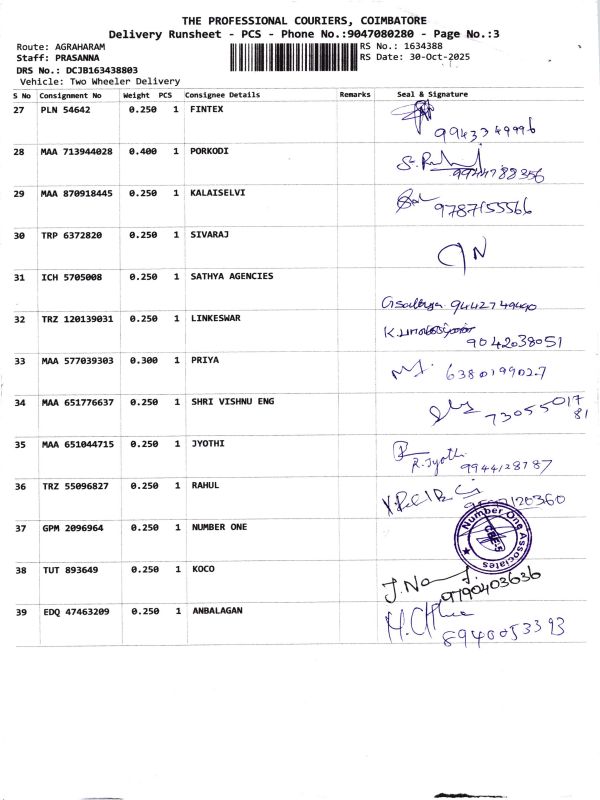 THE PROFESSIONAL COURIERS, COIMBATORE
Delivery Runsheet - PCS - Phone No.:9047080280 - Page No.:3
Route: AGRAHARAM RS No.: 1634388
Staff: PRASANNA RS Date: 30-Oct-2025
DRS No.: DCJB163438803
Vehicle: Two Wheeler Delivery
S No Consignment No Weight PCS Consignee Details Remarks Seal & Signature
27 PLN 54642 0.250 1 FINTEX
9943749996
28 MAA 713944028 0.400 1 PORKODI
9944788356
29 MAA 870918445 0.250 1 KALAISELVI
9787155566
30 TRP 6372820 0.250 1 SIVARAJ
31 ICH 5705008 0.250 1 SATHYA AGENCIES
9442749490
32 TRZ 120139031 0.250 1 LINKESWAR
9042038051
33 MAA 577039303 0.300 1 PRIYA
6380199027
34 MAA 651776637 0.250 1 SHRI VISHNU ENG
73055 017
81
35 MAA 651044715 0.250 1 JYOTHI
R. Jyothi 9944128787
36 TRZ 55096827 0.250 1 RAHUL
37 GPM 2096964 0.250 1 NUMBER ONE
Number One Associates
CBE-5
38 TUT 893649 0.250 1 KOCO
9790403636
39 EDQ 47463209 0.250 1 ANBALAGAN
8940053393